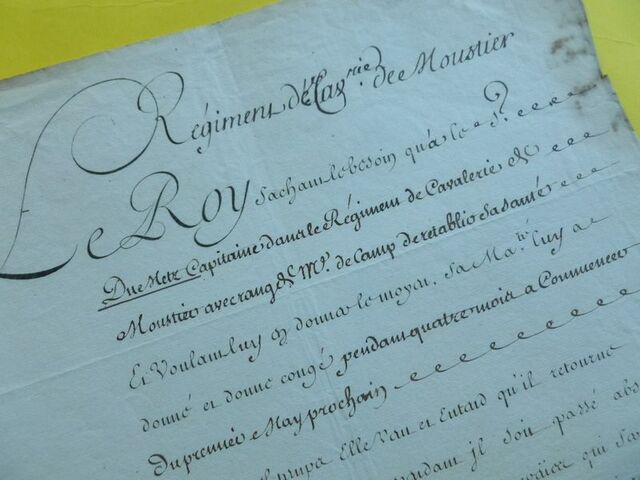 Régiment de Cav.rie de Moustier
Le Roy sachant le besoin qu'a le S.r
Du Metz Capitaine dans le Régiment de Cavalerie de
Moustier avec rang de M.e de Camp de rétablir sa santé
Et Voulant luy en donner le moyen. Sa Ma.té luy a
donné et donne congé pendant quatre mois a Commencer
Du premier May prochain
Elle Veut et Entend qu'il retourne
il soit passé abs
qui sa